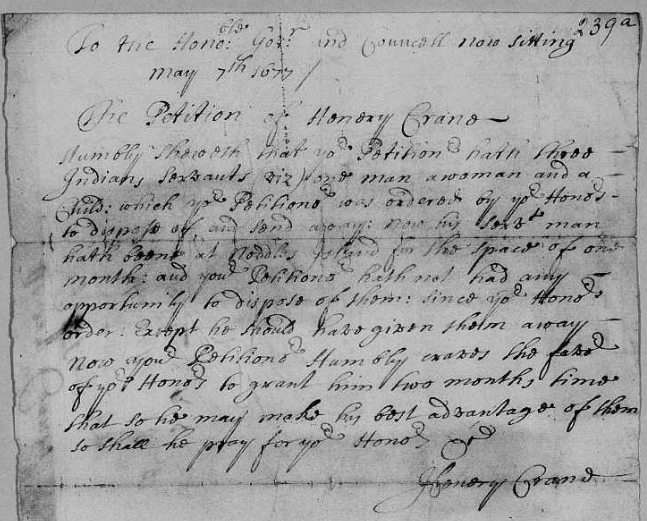 239a
To the Hono:ble Gov:r and Councell now sitting
May 7th 1677 /
The Petition of Henery Crane
Humbly sheweth that yor Petitionr hath three
Indians servants viz) one man a woman and a
Child: which yor Petitionr was ordered by yor Honors
to dispose of and send away: now his servt man
hath beene at Noddles Island for the space of one
month: and your Petitionr hath not had any
opportunity to dispose of them: since yor Honors
order: Except he should have given them away
Now your Petitionr Humbly craves the favor
of yor Honors to grant him two months time
that so he may make his best advantage of them
so shall he pray for yor Honors &c
Henery Crane